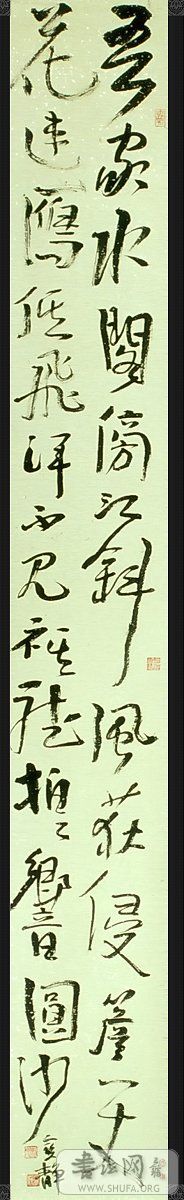 吾家水閣傍江斜風荻侵簷一丈
花雁低飛渾不見祗聽拍拍響圓沙
書法网
WWW.SHUFA.ORG